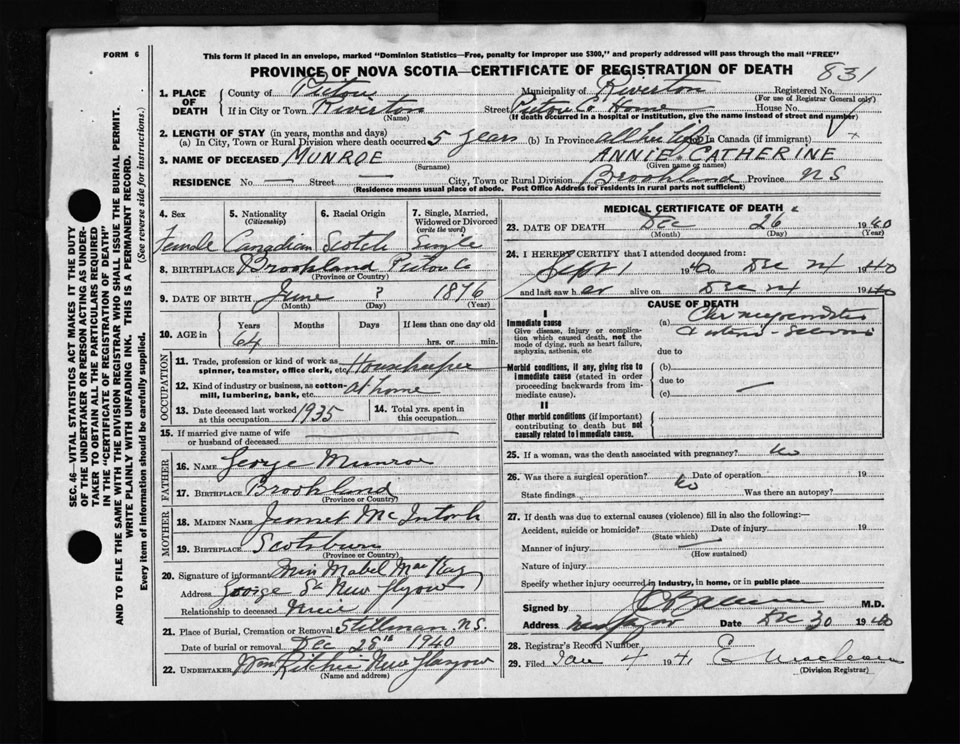 FORM 6
This form if placed in an envelope, marked "Dominion Statistics—Free, penalty for improper use $300," and properly addressed will pass through the mail "FREE"
PROVINCE OF NOVA SCOTIA—CERTIFICATE OF REGISTRATION OF DEATH 831
1. PLACE OF DEATH
County of Pictou Municipality of Riverton Registered No.
(For use of Registrar General only)
If in City or Town Riverton Street Pictou Co Home House No.
(Name) (If death occurred in a hospital or institution, give the name instead of street and number)
2. LENGTH OF STAY (in years, months and days)
(a) In City, Town or Rural Division where death occurred 5 years (b) In Province all her life In Canada (if immigrant)
3. NAME OF DECEASED MUNROE ANNIE CATHERINE
(Surname) (Given name or names)
RESIDENCE No. — Street — City, Town or Rural Division Brookland Province NS
(Residence means usual place of abode. Post Office Address for residents in rural parts not sufficient)
4. Sex 5. Nationality 6. Racial Origin 7. Single, Married, Widowed or Divorced
(Citizenship) (write the word)
Female Canadian Scotch Single
8. BIRTHPLACE Brookland Pictou Co
(Province or Country)
9. DATE OF BIRTH June ? 1876
(Month) (Day) (Year)
10. AGE in Years Months Days If less than one day
64 hrs. or min.
OCCUPATION
11. Trade, profession or kind of work as spinner, teamster, office clerk, etc. Housekeeper
12. Kind of industry or business, as cotton-mill, lumbering, bank, etc. at home
13. Date deceased last worked at this occupation 1935 14. Total yrs. spent in this occupation
15. If married give name of wife or husband of deceased
FATHER
16. NAME George Munroe
17. BIRTHPLACE Brookland
(Province or Country)
MOTHER
18. MAIDEN NAME Jennet McIntosh
19. BIRTHPLACE Scotsburn
(Province or Country)
20. Signature of informant Miss Mabel MacKay
Address George St New Glasgow
Relationship to deceased Niece
21. Place of Burial, Cremation or Removal Stillman N.S.
Date of burial or removal Dec 28th 1940
22. UNDERTAKER Wm Ritchie New Glasgow
(Name and address)
MEDICAL CERTIFICATE OF DEATH
23. DATE OF DEATH Dec 26 1940
(Month) (Day) (Year)
24. I HEREBY CERTIFY that I attended deceased from:
Sept 1 1940 Dec 24 1940
and last saw her alive on Dec 24 1940
CAUSE OF DEATH
I
Immediate cause
Give disease, injury or complication which caused death, not the mode of dying, such as heart failure, asphyxia, asthenia, etc
(a) Chr myocarditis
due to
Morbid conditions, if any, giving rise to immediate cause (stated in order proceeding backwards from immediate cause).
(b)
due to
(c) —
II
Other morbid conditions (if important) contributing to death but not causally related to immediate cause.
25. If a woman, was the death associated with pregnancy? No
26. Was there a surgical operation? No Date of operation 19
State findings Was there an autopsy?
27. If death was due to external causes (violence) fill in also the following:—
Accident, suicide or homicide? Date of injury 19
(State which)
Manner of injury
(How sustained)
Nature of injury
Specify whether injury occurred in industry, in home, or in public place
Signed by M.D.
Address New Glasgow Date Dec 30 1940
28. Registrar's Record Number
29. Filed Jan 4 1941 E Maclean
(Division Registrar)
SEC. 46—VITAL STATISTICS ACT MAKES IT THE DUTY
OF THE UNDERTAKER OR PERSON ACTING AS UNDERTAKER
TO OBTAIN ALL THE PARTICULARS REQUIRED
IN THE "CERTIFICATE OF REGISTRATION OF DEATH"
AND TO FILE THE SAME WITH THE DIVISION REGISTRAR WHO SHALL ISSUE THE BURIAL PERMIT.
WRITE PLAINLY WITH UNFADING INK. THIS IS A PERMANENT RECORD.
Every item of information should be carefully supplied. (See reverse side for instructions.)